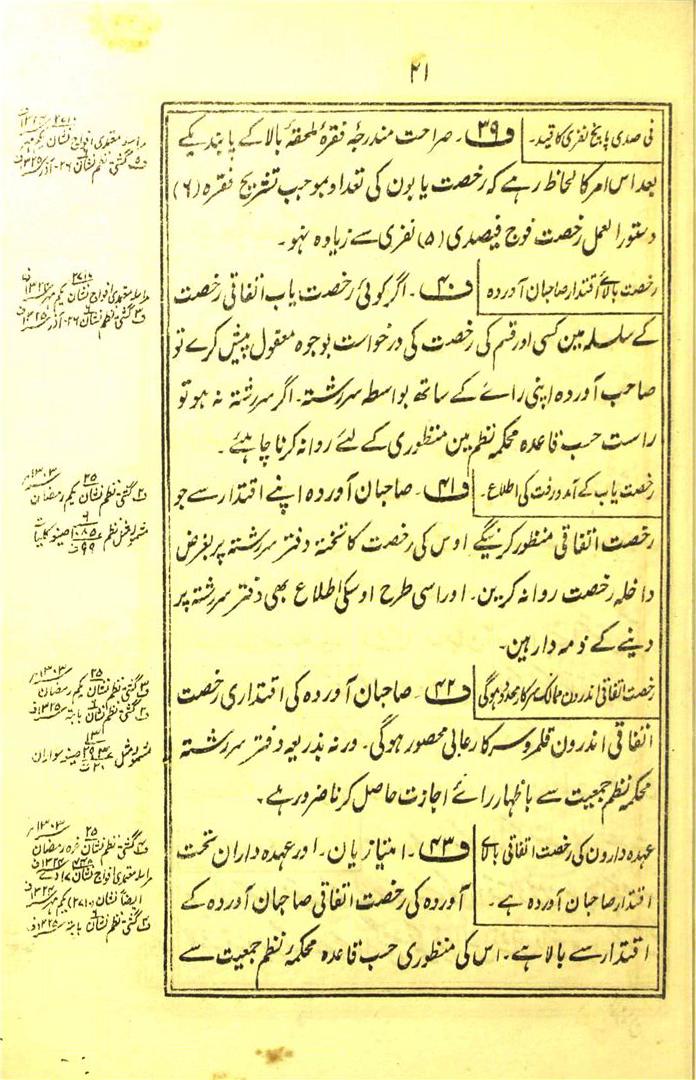 ۴۱
فی صدی پانچ نفری کا قید۔
ف۳۹۔ صراحت مندرجۂ فقرۂ ملحقۂ بالا کے پابندیکے
بعد اس امر کا لحاظ رہے کہ رخصت یابون کی تعداد بموجب تشریح فقرہ (۶)
دستور العمل رخصت فوج فیصدی (۵) نفری سے زیادہ نہو۔
رخصت بالائے اقتدار صاحبان آوردہ
ف۴۰۔ اگر کوئی رخصت یاب اتفاقی رخصت
کے سلسلہ مین کسی اور قسم کی رخصت کی درخواست بوجوہ معقول پیش کرے تو
صاحب آوردہ اپنی رائے کے ساتھ بواسطہ سررشتہ۔ اگر سررشتہ نہ ہو تو
راست حسب قاعدہ محکمہ نظم مین منظوری کے لئے روانہ کرنا چاہئے۔
رخصت یاب کے آمد و رفت کی اطلاع۔
ف۴۱۔ صاحبان آوردہ اپنے اقتدار سے جو
رخصت اتفاقی منظور کرینگے اوس کی رخصت کا تختہ دفتر سررشتہ پر بغرض
داخلہ رخصت روانہ کرین۔ اور اسی طرح اوسکی اطلاع بھی دفتر سررشتہ پر
دینے کے ذمہ دار ہین۔
رخصت اتفاقی اندرون ممالک سرکار محدود ہوگی
ف۴۲۔ صاحبان آوردہ کی اقتداری رخصت
اتفاقی اندرون قلمرو سرکار عالی محصور ہوگی۔ ورنہ بذریعہ دفتر سررشتہ
محکمہ نظم جمعیت سے باظہار رائے اجازت حاصل کرنا ضرور ہے۔
عہدہ دارون کی رخصت اتفاقی بالائے
اقتدار صاحبان آوردہ ہے۔
ف۴۳۔ امتیازیان۔ اور عہدہ داران تحت
آوردہ کی رخصت اتفاقی صاحبان آوردہ کے
اقتدار سے بالا ہے۔ اس کی منظوری حسب قاعدہ محکمۂ نظم جمعیت سے
مراسلہ معتمدی افواج نشان یکم مہر
گشتی نظم نشان
مراسلہ معتمدی افواج نشان یکم مہر
گشتی نظم نشان
گشتی نظم نشان یکم رمضان
گشتی نظم نشان یکم رمضان
گشتی نظم نشان
گشتی نظم نشان غرہ رمضان
مراسلہ معتمدی افواج نشان
ایضاً نشان (۲۷۱۰) یکم مہر
گشتی نظم نشان